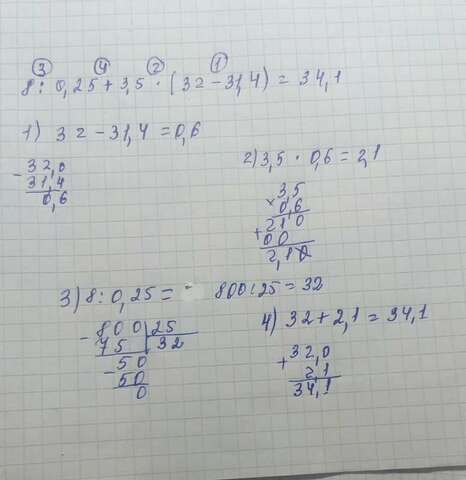 3 4 2 1
8 : 0,25 + 3,5 · (32 - 31,4) = 34,1
1) 32 - 31,4 = 0,6
- 32,0
31,4
0,6
2) 3,5 · 0,6 = 2,1
3,5
× 0,6
210
+ 00
2,10
3) 8 : 0,25 = 800 : 25 = 32
- 800 | 25
75 | 32
- 50
50
0
4) 32 + 2,1 = 34,1
+ 32,0
2,1
34,1